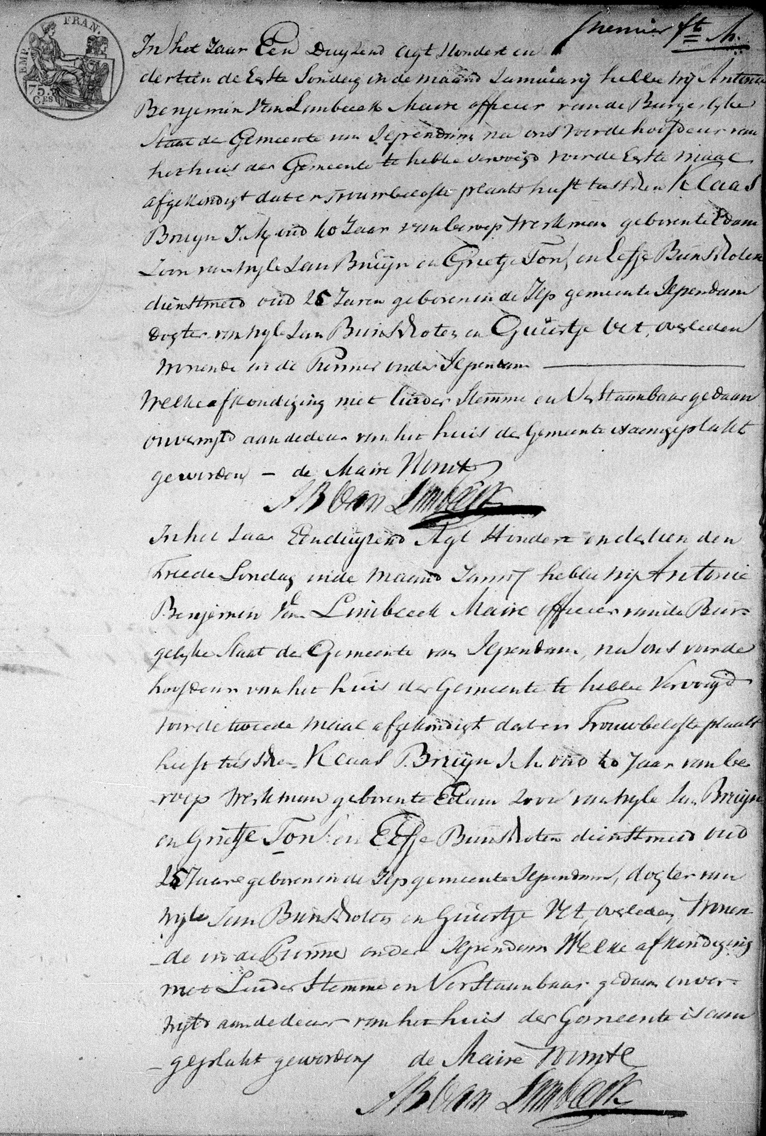 EMP. FRAN.
75
Cts
premier ft
In het Jaar Een Duyzend Agt Hondert en
dertien de Eerste Sondag in de maand Januarij hebbe Wij Antonie
Benjamin Van Limbeeck Maire officier van de Burgerlyke
Staat de Gemeente van Ilpendam na ons voor de hoofdeur van
het huis der Gemeente te hebbe vervoegd voor de Eerste maal
afgekondigt dat er trouwbelofte plaats heeft tusschen Klaas
Bruijn J.M. oud 40 Jaar van beroep Werkman geboren te Edam
Zoon van wyle Jan Bruijn en Grietje Ton, en Eefje Bunschoten
dienstmeid oud 25 Jaren geboren in de Ilp gemeente Ilpendam
dogter van wyle Jan Bunschoten en Guurtje Vet, overleden
Wonende in de Purmer onder Ilpendam
Welke afkondiging met luider Stemme en Verstaanbaar gedaan
onverwyld aan de deur van het huis der Gemeente is aangeplakt
geworden - de Maire
AB Van Limbeeck
In het Jaar Eenduyzend Agt Hondert en dertien den
Tweede Sondag in de maand hebbe wij Antonie
Benjamin Van Limbeeck Maire officier van de Bur-
gelyke Staat de Gemeente van Ilpendam, na ons voor de
hoofdeur van het huis der Gemeente te hebbe Vervoegd
voor de tweede maal afgekondigt dat er Trouwbelofte plaats
heeft tussche Klaas Bruijn J.M. oud 40 Jaar van be
roep Werkman geboren te Edam Zoon van wyle Jan Bruijn
en Grietje Ton en Eefje Bunschoten dienstmeid oud
25 Jaare geboren in de Ilp gemeente Ilpendam, dogter van
wyle Jan Bunschoten en Guurtje Vet, overleden Wonen
de in de Purme onder Ilpendam Welke afkondiging
met Luider Stemme en Verstaanbaar gedaan onver-
wyld aan de deur van het huis der Gemeente is aan
geplakt geworden de Maire
AB Van Limbeeck